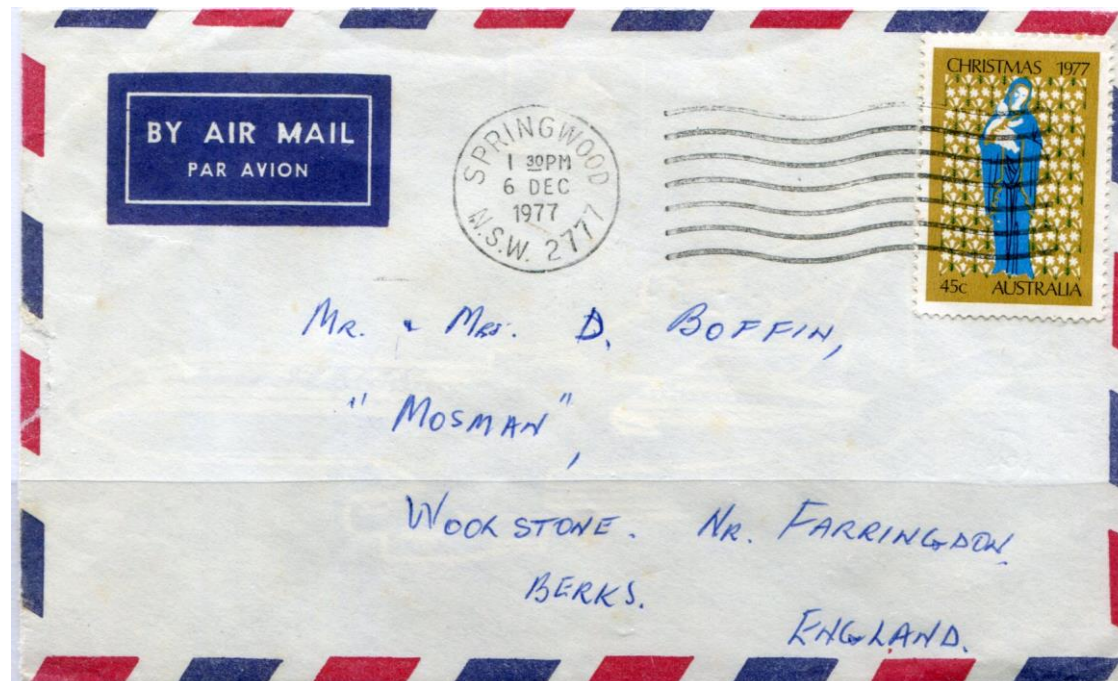 BY AIR MAIL
PAR AVION
SPRINGWOOD
1 30PM
6 DEC
1977
N.S.W. 2777
CHRISTMAS 1977
45c AUSTRALIA
Mr. & Mrs. D. BOFFIN,
"MOSMAN",
WOOLSTONE. NR. FARRINGDON.
BERKS.
ENGLAND.